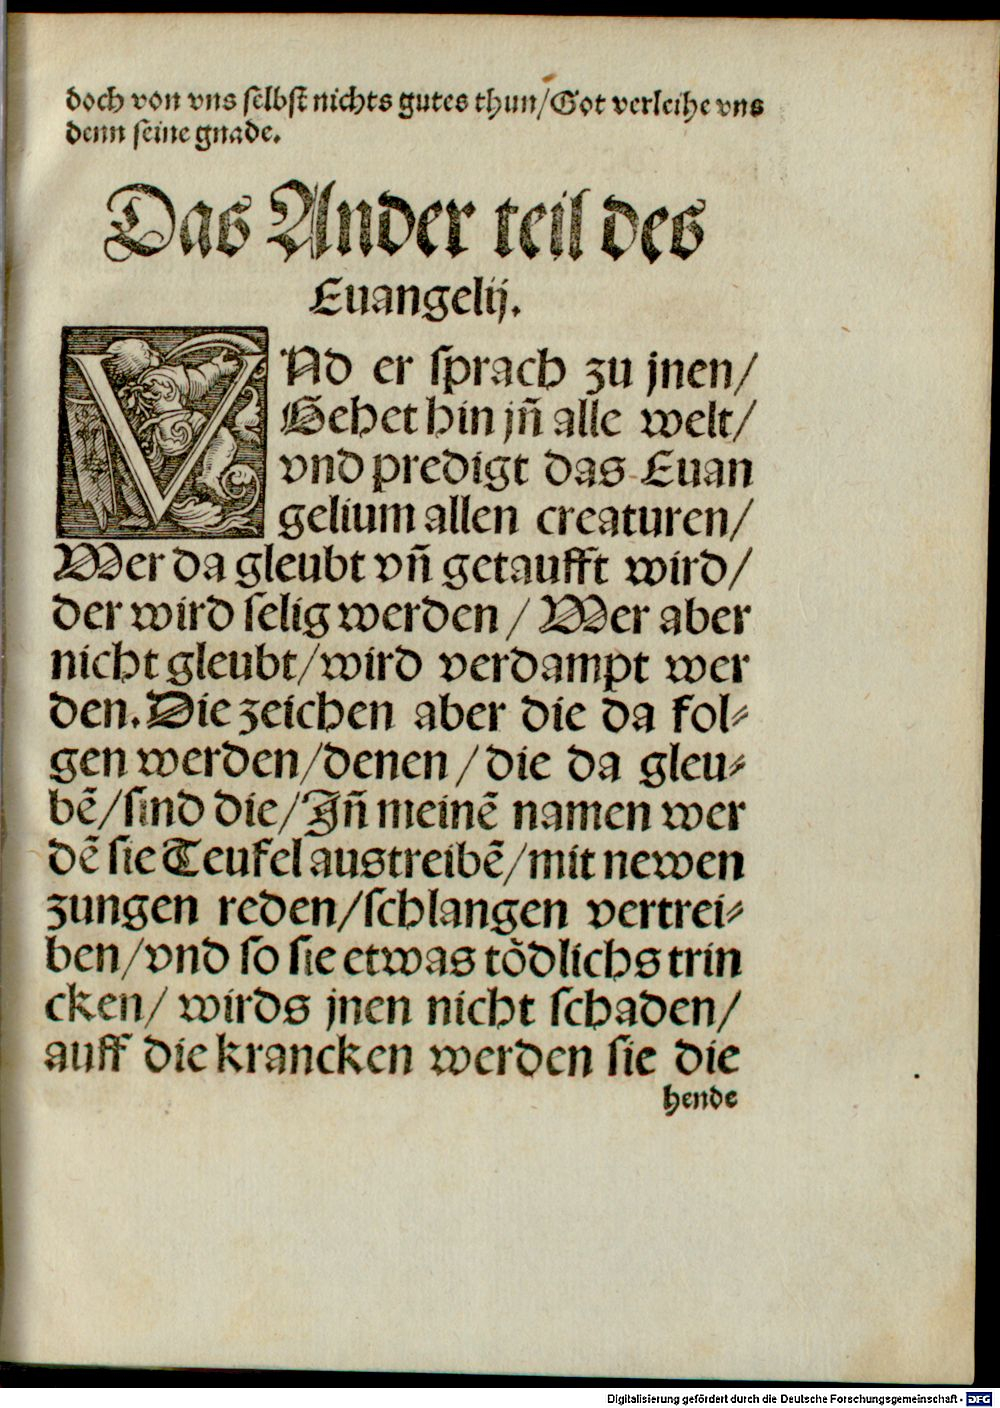 doch von vns selbst nichts gutes thun/Got verleihe vns
denn seine gnade.
Das Ander teil des
Euangelij.
VNd er sprach zu jnen/
Gehet hin jñ alle welt/
vnd predigt das Euan
gelium allen creaturen/
Wer da gleubt vñ getaufft wird/
der wird selig werden / Wer aber
nicht gleubt/wird verdampt wer
den. Die zeichen aber die da fol⸗
gen werden/denen / die da gleu⸗
bẽ/sind die/Jñ meinẽ namen wer
dẽ sie Teufel austreibẽ/mit newen
zungen reden/schlangen vertrei⸗
ben/vnd so sie etwas tödlichs trin
cken/ wirds jnen nicht schaden/
auff die krancken werden sie die
hende
Digitalisierung gefördert durch die Deutsche Forschungsgemeinschaft - DFG